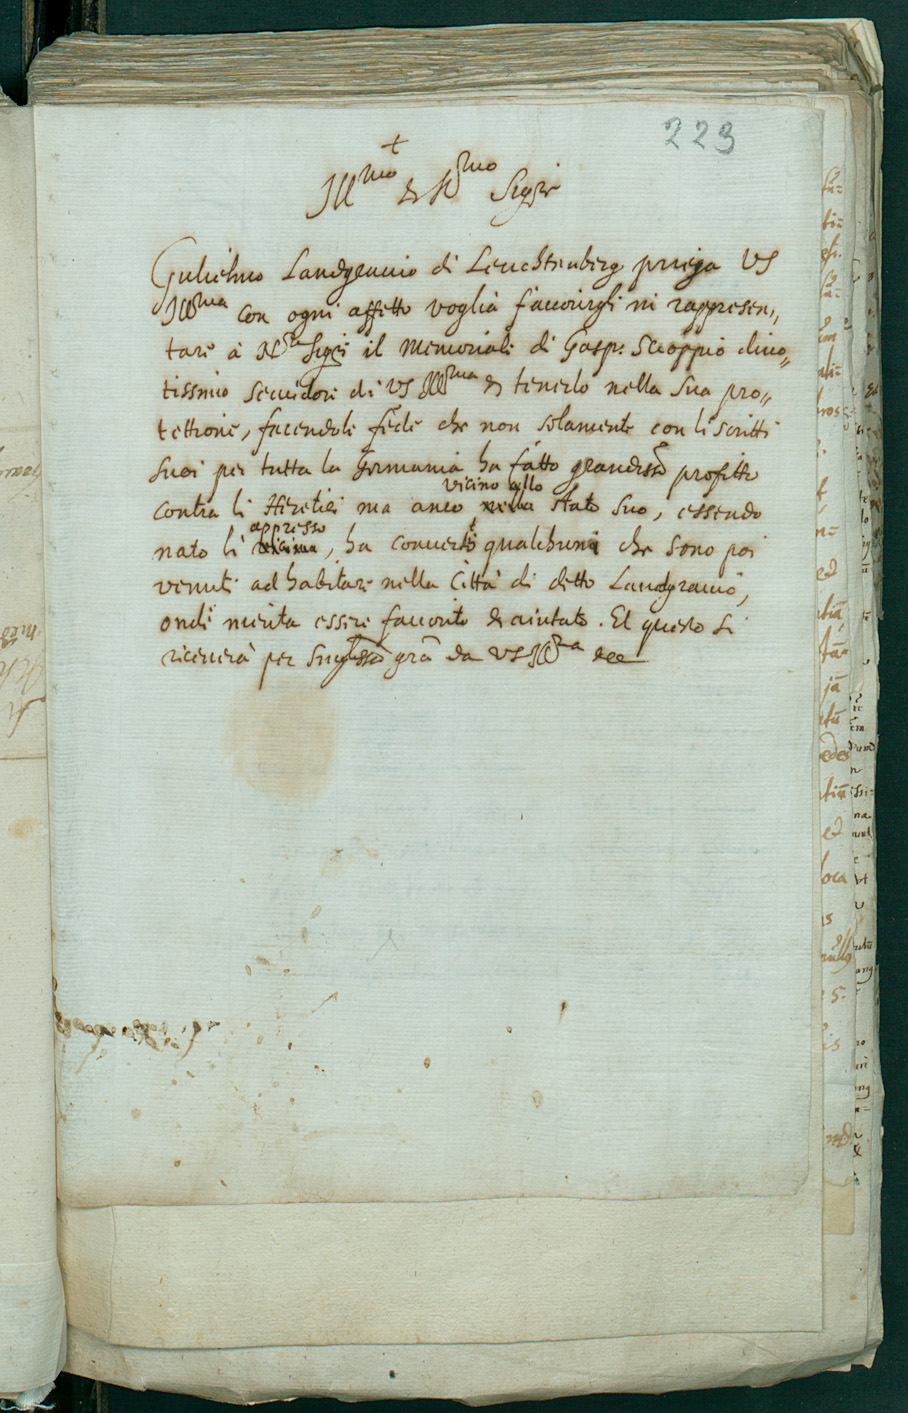 223
+
Ill.mo et R.mo Sig.re
Gulielmo Landgrauio di Leuchtenberg priega VS
Ill.ma con ogni affetto voglia fauorirgli in rappresen„
tare à N.ro Sig.re il Memoriale di Gasp: Scioppio diuo„
tissimo seruidore di VS Ill.ma et tenerlo nella sua pro„
tettione, facendole fede che non solamente con li scritti
suoi per tutta la Germania ha fatto grandiss.o profitto
contra li Heretici ma anco vicino allo stato suo, essendo
nato lì appresso, ha conuertito qualchuni che sono poi
venuti ad habitare nella Città di detto Landgrauio,
onde merita essere fauorito et aiutato. Et questo si
riceuerà per singulariss.a gra da VS Ill.ma